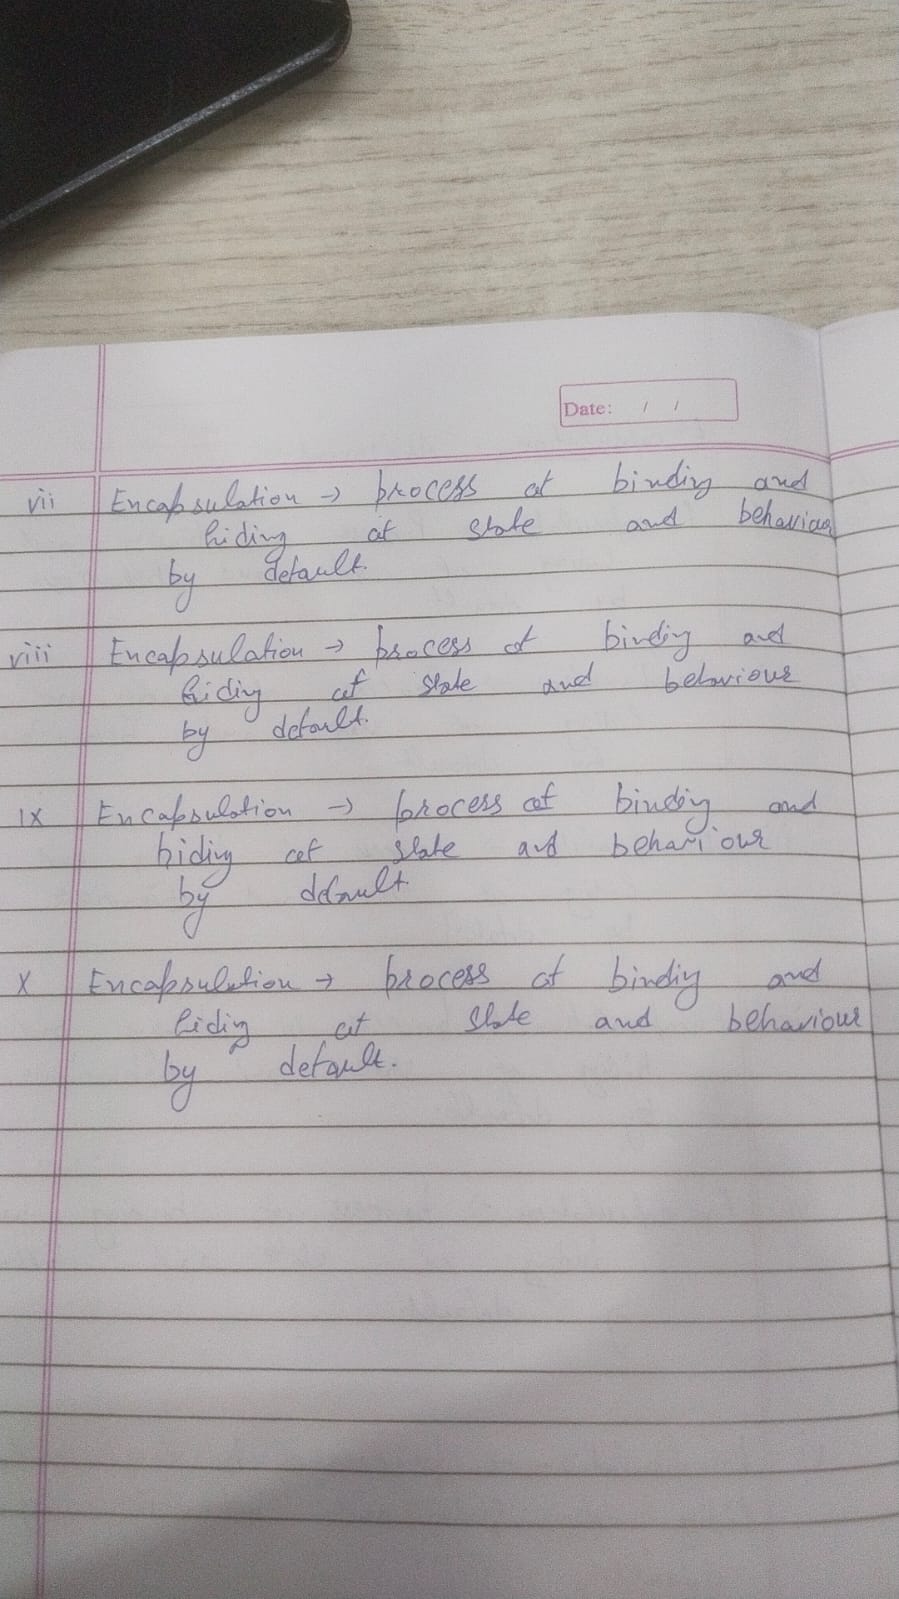 Date: / /
vii Encapsulation → process of binding and
hiding of state and behaviour
by default.
viii Encapsulation → process of binding and
hiding of state and behaviour
by default.
ix Encapsulation → process of binding and
hiding of state and behaviour
by default.
x Encapsulation → process of binding and
hiding of state and behaviour
by default.